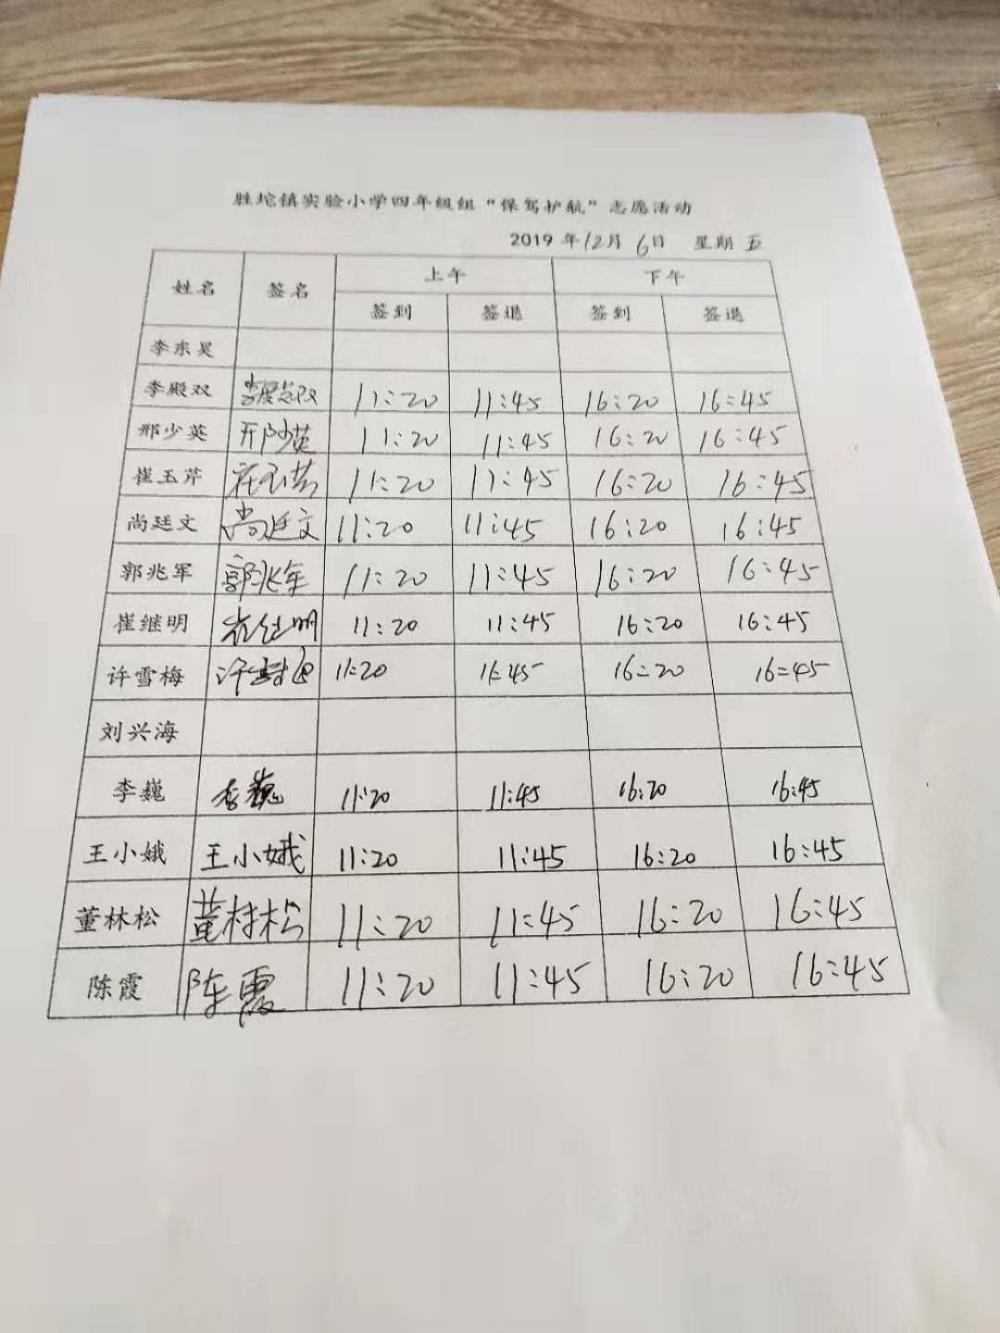 胜坨镇实验小学四年级组“保驾护航”志愿活动
2019 年12月 6日 星期 五
姓名 签名 上午 下午
签到 签退 签到 签退
李东昊
李殿双 李殿双 11:20 11:45 16:20 16:45
邢少英 邢少英 11:20 11:45 16:20 16:45
崔玉芹 崔玉芹 11:20 11:45 16:20 16:45
尚廷文 尚廷文 11:20 11:45 16:20 16:45
郭兆军 郭兆军 11:20 11:45 16:20 16:45
崔继明 崔继明 11:20 11:45 16:20 16:45
许雪梅 许雪梅 11:20 11:45 16:20 16:45
刘兴海
李巍 李巍 11:20 11:45 16:20 16:45
王小娥 王小娥 11:20 11:45 16:20 16:45
董林松 董林松 11:20 11:45 16:20 16:45
陈霞 陈霞 11:20 11:45 16:20 16:45